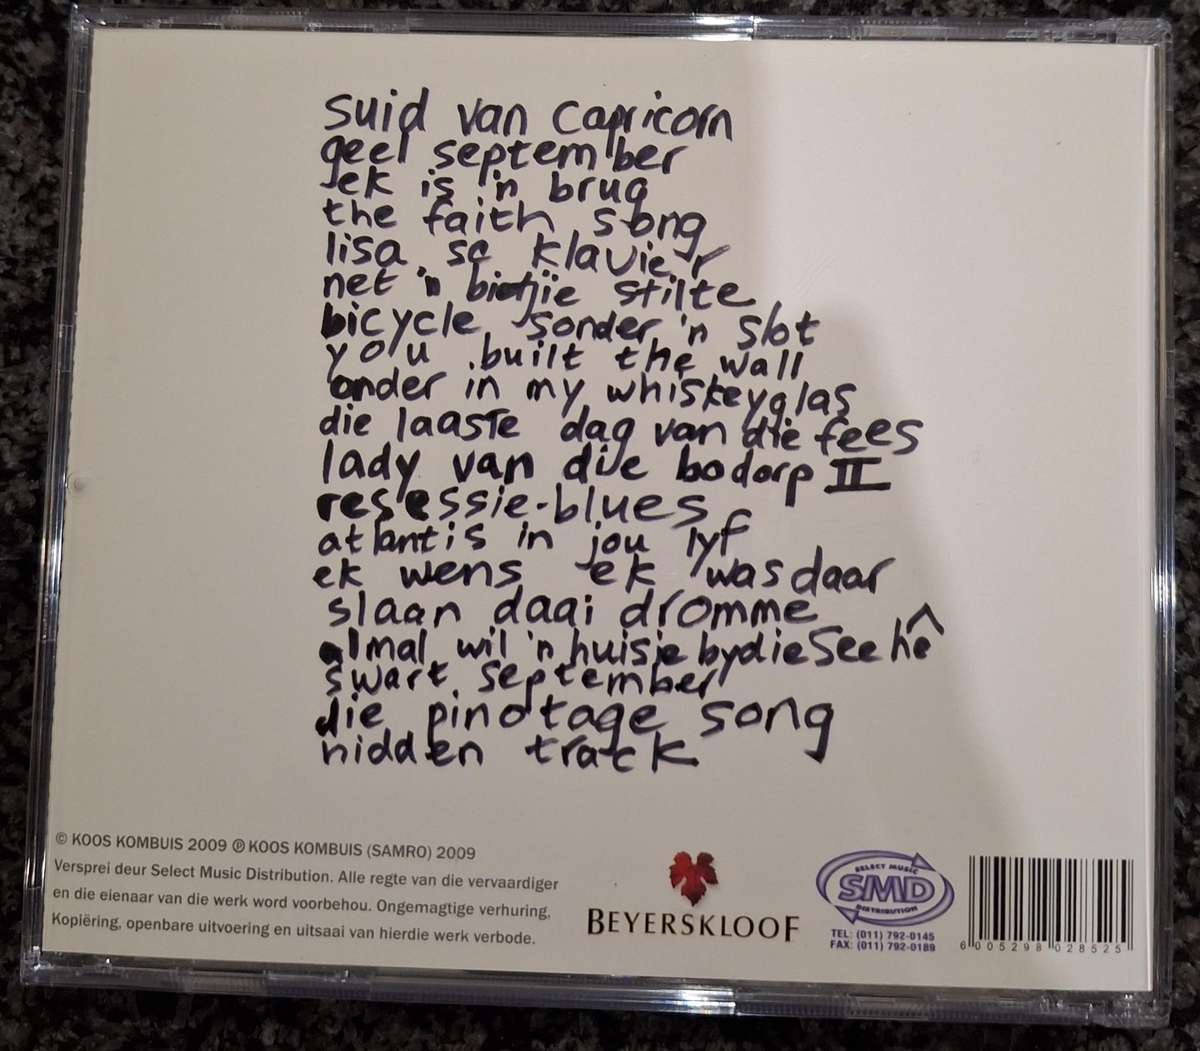 suid van capricorn
geel september
ek is 'n brug
the faith song
lisa se klavier
net 'n bietjie stilte
bicycle sonder 'n slot
you built the wall
onder in my whiskeyglas
die laaste dag van die fees
lady van die bodorp II
resessie-blues
atlantis in jou lyf
ek wens ek was daar
slaan daai dromme
almal wil 'n huisie by die see hê
swart september
die pinotage song
hidden track
© KOOS KOMBUIS 2009 ℗ KOOS KOMBUIS (SAMRO) 2009
Versprei deur Select Music Distribution. Alle regte van die vervaardiger
en die eienaar van die werk word voorbehou. Ongemagtige verhuring,
Kopiëring, openbare uitvoering en uitsaai van hierdie werk verbode.
BEYERSKLOOF
SELECT MUSIC
SMD
DISTRIBUTION
TEL: (011) 792-0145
FAX: (011) 792-0189
6 005298 028525